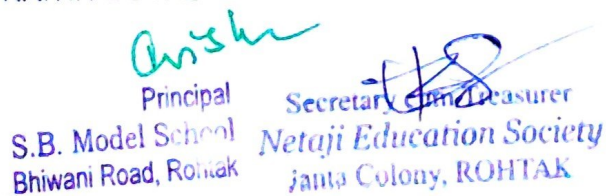 Principal
S.B. Model School
Bhiwani Road, Rohtak
Secretary Treasurer
Netaji Education Society
Janta Colony, ROHTAK